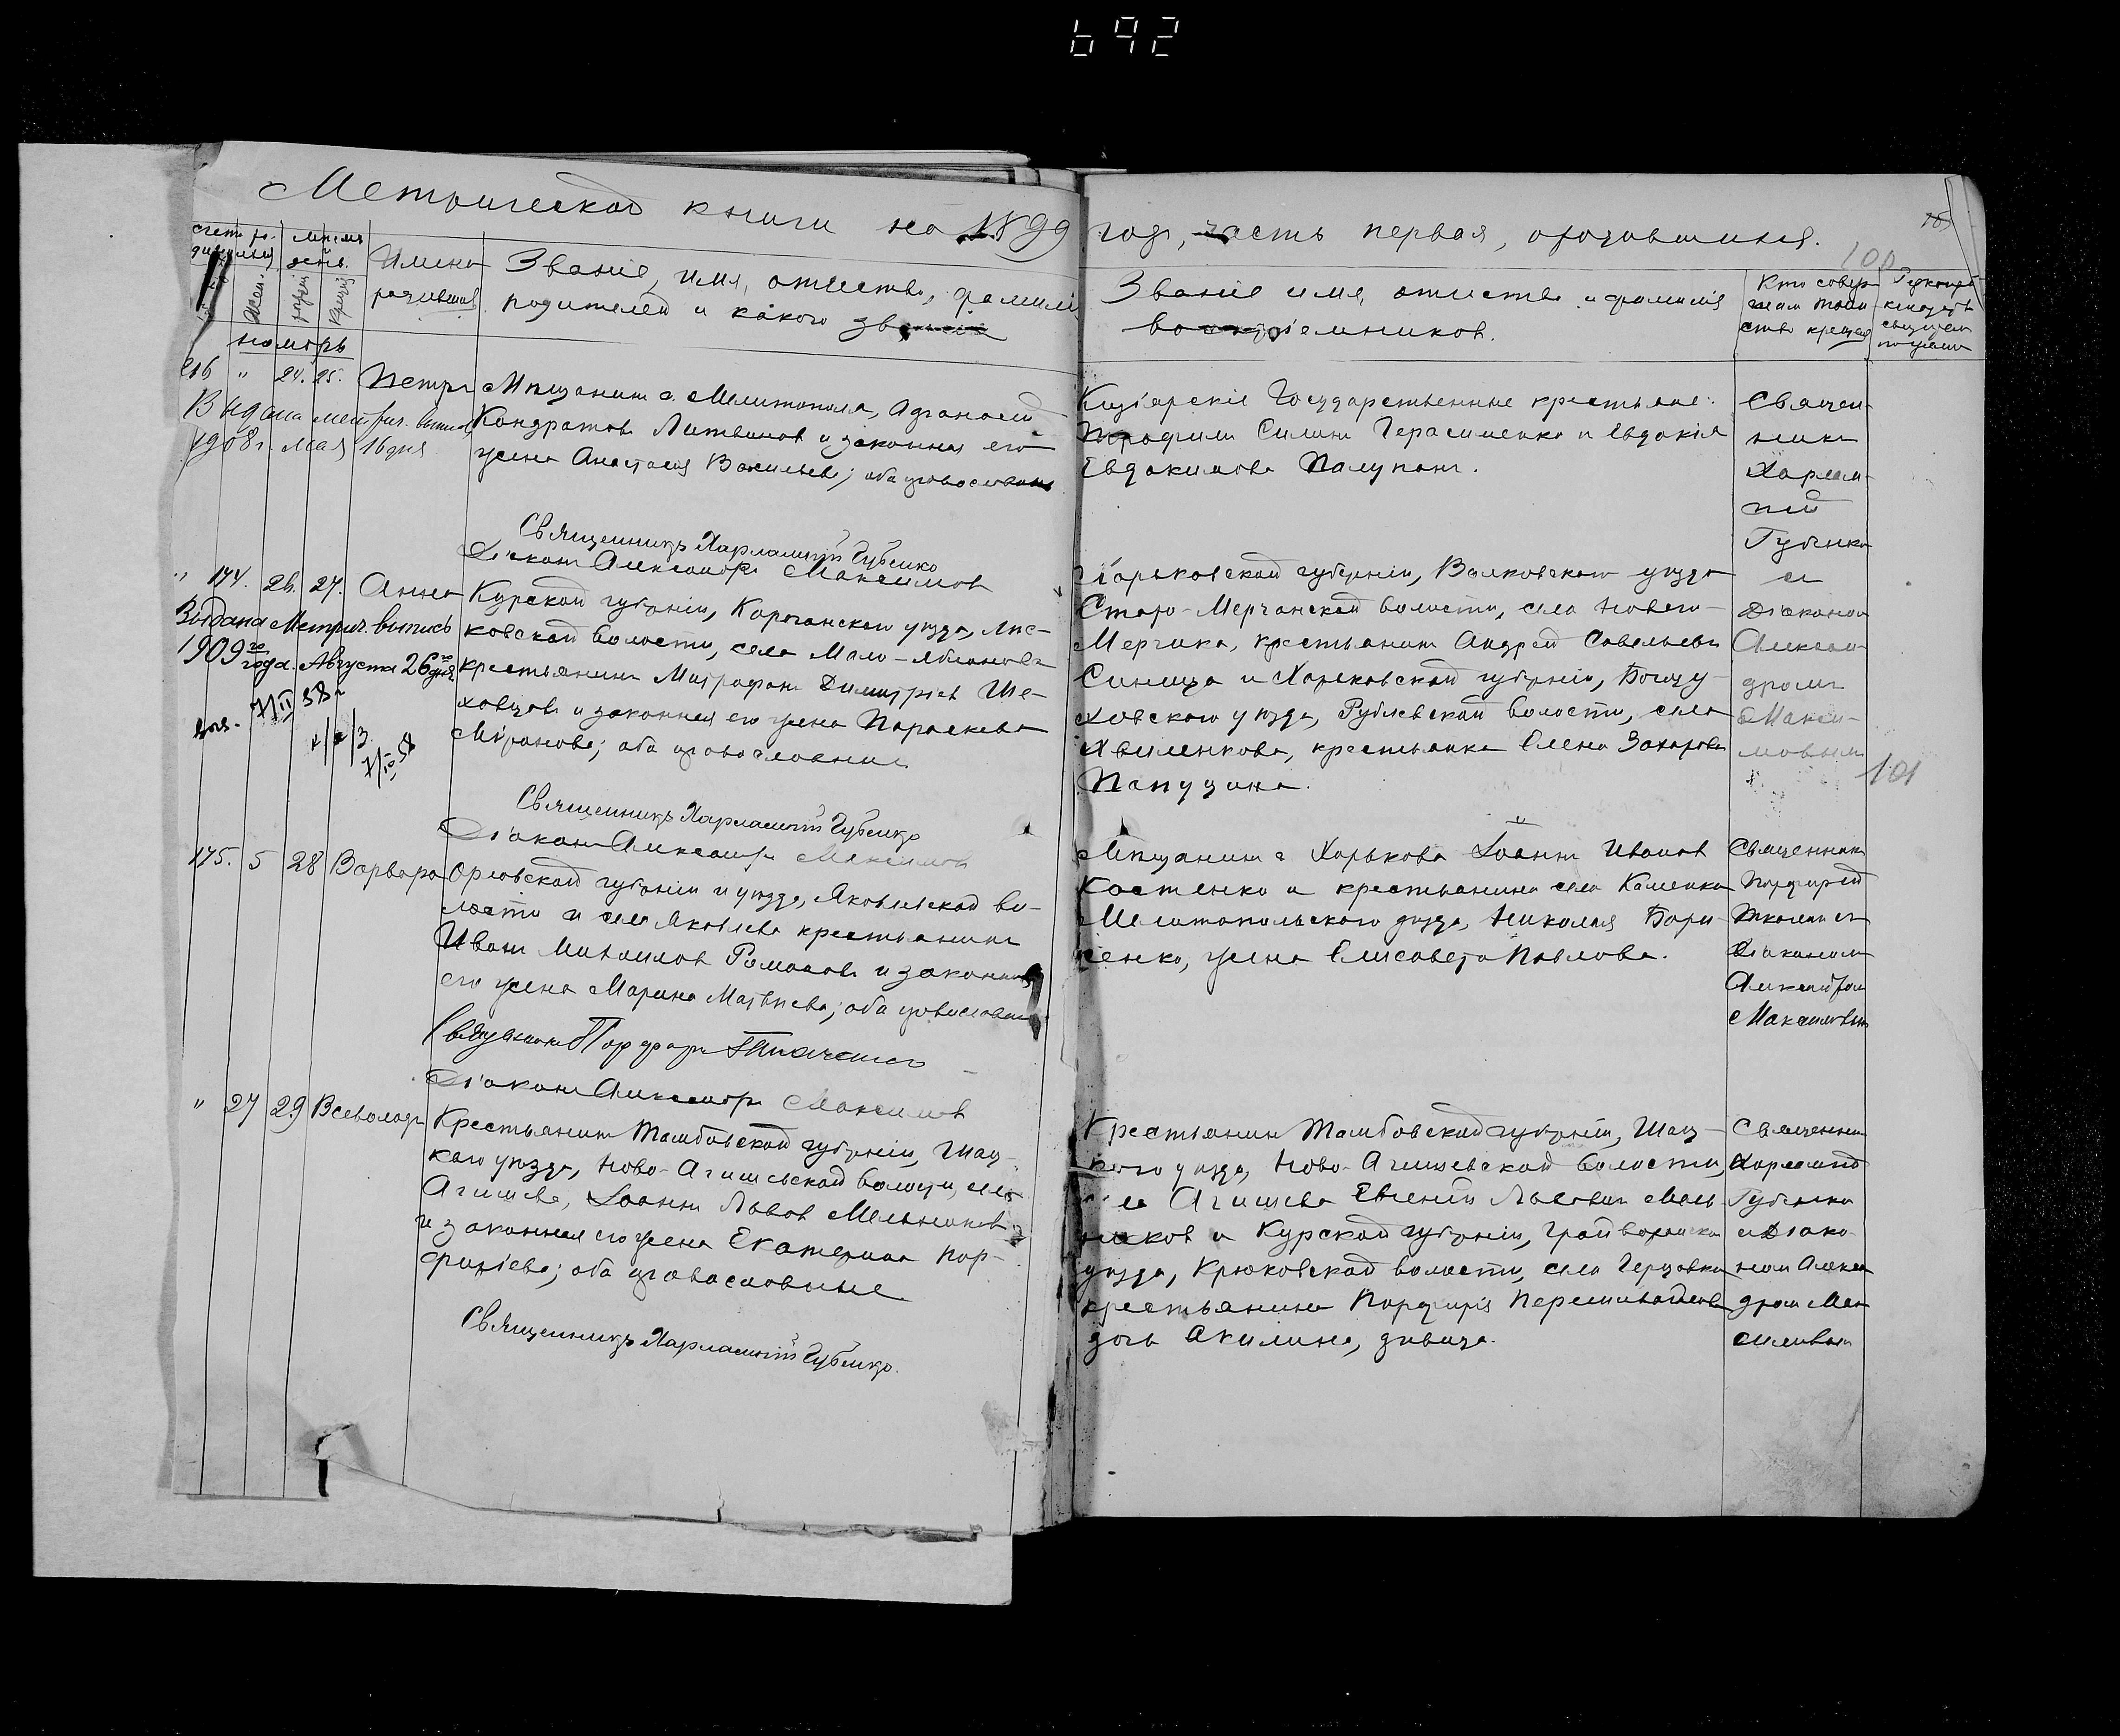 692
Метрической книги на 1899 год, часть первая, о родившихся.
100
Счет ро-
дившихся
Месяц
и день.
Жен.
рожд.
крещ.
Ноябрь
Имена
родившихся
Званіе, имя, отчество, фамилія
родителей и какого
Званіе имя, отчество и фамилія
воспріемников.
Кто совер-
шал таин-
ство крещен.
216 " 24. 25. Петръ
Выдана метрич. выпись
1908 г. мая 16 дня
Мѣщанинъ г. Мелитополя, Афанасій
Кондратовъ Литвиновъ и законная его
жена Анастасія Васильева; оба православные
Священникъ Харлампій Губенко
Діаконъ Александръ Максимовъ
Государственные крестьяне:
Силинъ Герасименко и Евдокія
Евдокимова
Священ-
никъ
Харлам-
пій
Губенко
" 174. 26. 27. Анна
Выдана Метрич. выпись
1909го года Августа 26го дня
7/II 58 г
Курской губерніи, Корочанскаго уѣзда,
ковской волости, села Мало-Яблонова
крестьянинъ Митрофанъ Димитріевъ Ше-
ховцовъ и законная его жена Параскева
Миронова; оба православные
Священникъ Харлампій Губенко
Діаконъ Александръ Максимовъ
Харьковской губерніи, Валковскаго уѣзда
Старо-Мерчанской волости, села Новаго-
Мерчика, крестьянинъ Андрей Савельевъ
Синица и Харьковской губерніи, Богоду-
ховскаго уѣзда, Рублевской волости, села
крестьянка Елена Захарова
и
Діаконом
Алексан-
дром
Макси-
мовым
101
175. 5 28 Варвара
Орловской губерніи и уѣзда, Яковлевской во-
лости и села Яковлева крестьянинъ
Иванъ Михаилов Романовъ и законная
его жена Марина Матвѣева; оба православные
Священникъ Порфирій Ткаченко
Діаконъ Александръ Максимовъ
Мѣщанинъ г. Харькова Іоаннъ Иванов
Костенко и крестьянина села Каменки
Мелитопольскаго уѣзда, Николая Бори-
сенко, жена Елисавета Павлова.
Священник
Порфирій
Ткаченко
Діаконом
Александром
Максимовым
" 27 29 Всеволодъ
Крестьянинъ Тамбовской губерніи, Шац-
каго уѣзда, Ново-Агишевской волости, села
Агишева, Іоаннъ Львов Мельников
и законная его жена Екатерина Пор-
фиріева; оба православные
Священникъ Харлампій Губенко.
Крестьянин Тамбовской губерніи, Шац-
каго уѣзда, Ново-Агишевской волости,
села Агишева Евгеній Львович Мель-
ников и Курской губерніи, Грайворонскаго
уѣзда, Крюковской волости, села Герцовки
крестьянина Порфирія
дочь Акилина, дѣвица.
Священник
Харлампій
Губенко
и Діако-
ном Алексан-
дром Мак-
симовым